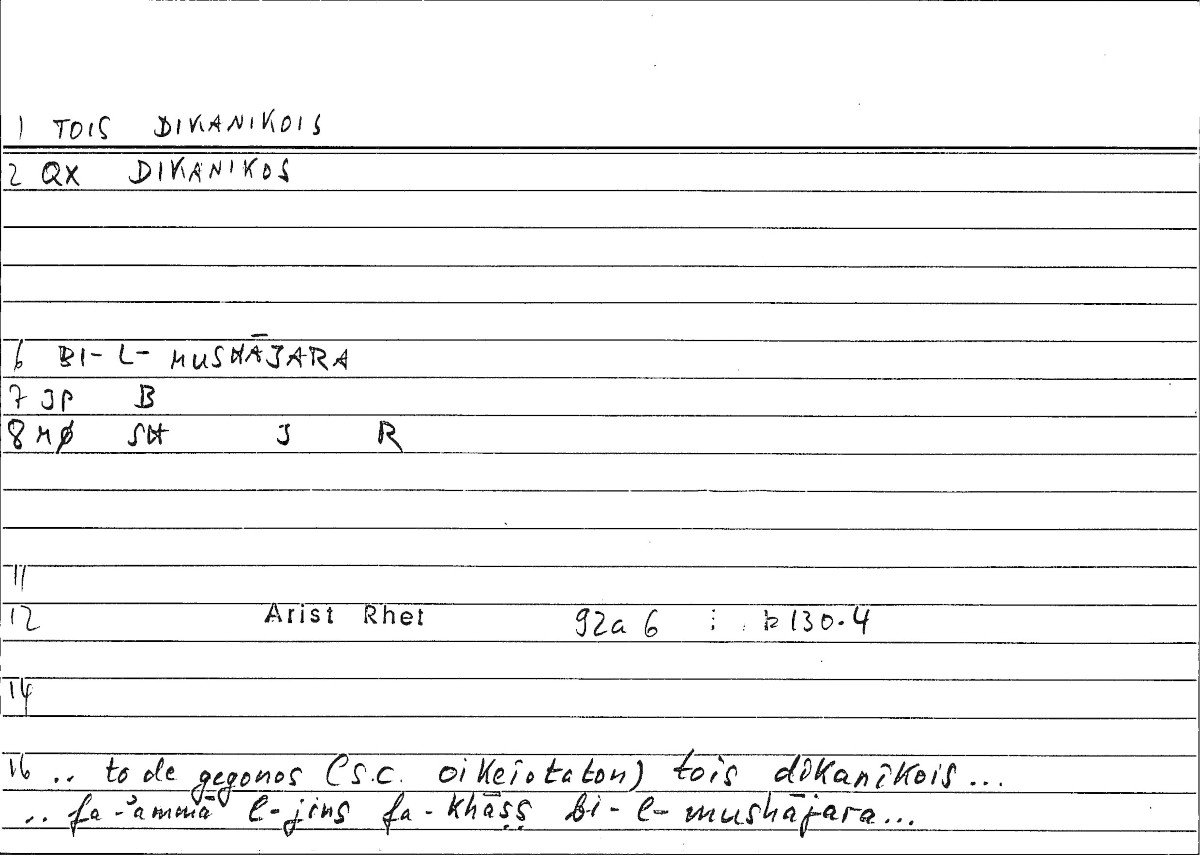 1 TOIS DIKANIKOIS
2 QX DIKANIKOS
6 BI-L-MUSHĀJARA
7 JP B
8 MØ SH J R
11
12 Arist Rhet 92a 6 ; b 130.4
14
16 .. to de gegonos (s.c. oikeiotaton) tois dikanikois...
.. fa-'ammā l-jins fa-khāṣṣ bi-l-mushājara...